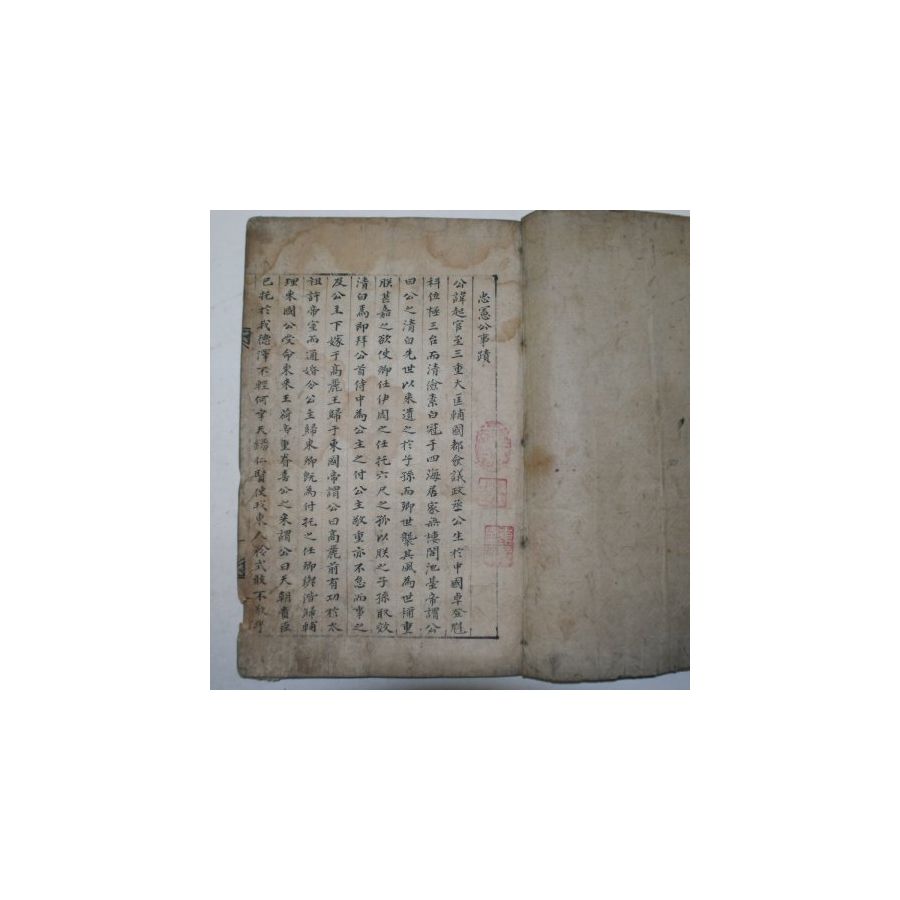 忠憲公事蹟
公諱起官至三重大匡輔國都僉議政丞公生於中國卓登魁
科位極三台而清儉素白冠于四海居家無樓閣池臺帝謂公
曰公之清白先世以來遺之於子孫而卿世襲其風為世補重
朕甚嘉之欲使卿任伊周之任托六尺之孤以朕之子孫取效
清白焉即拜公首侍中為公主之付公主敬重亦不怠而事之
及公主下嫁于高麗王歸于東國帝謂公曰高麗前有功於太
祖許帝室而通婚分公主歸東卿旣為付托之任卿與偕歸輔
理東國公受命東來王荷帝重眷喜公之来謂公曰天朝賚臣
已托於我德澤不輕何幸天錫仁賢使我東人矜式敢不敬